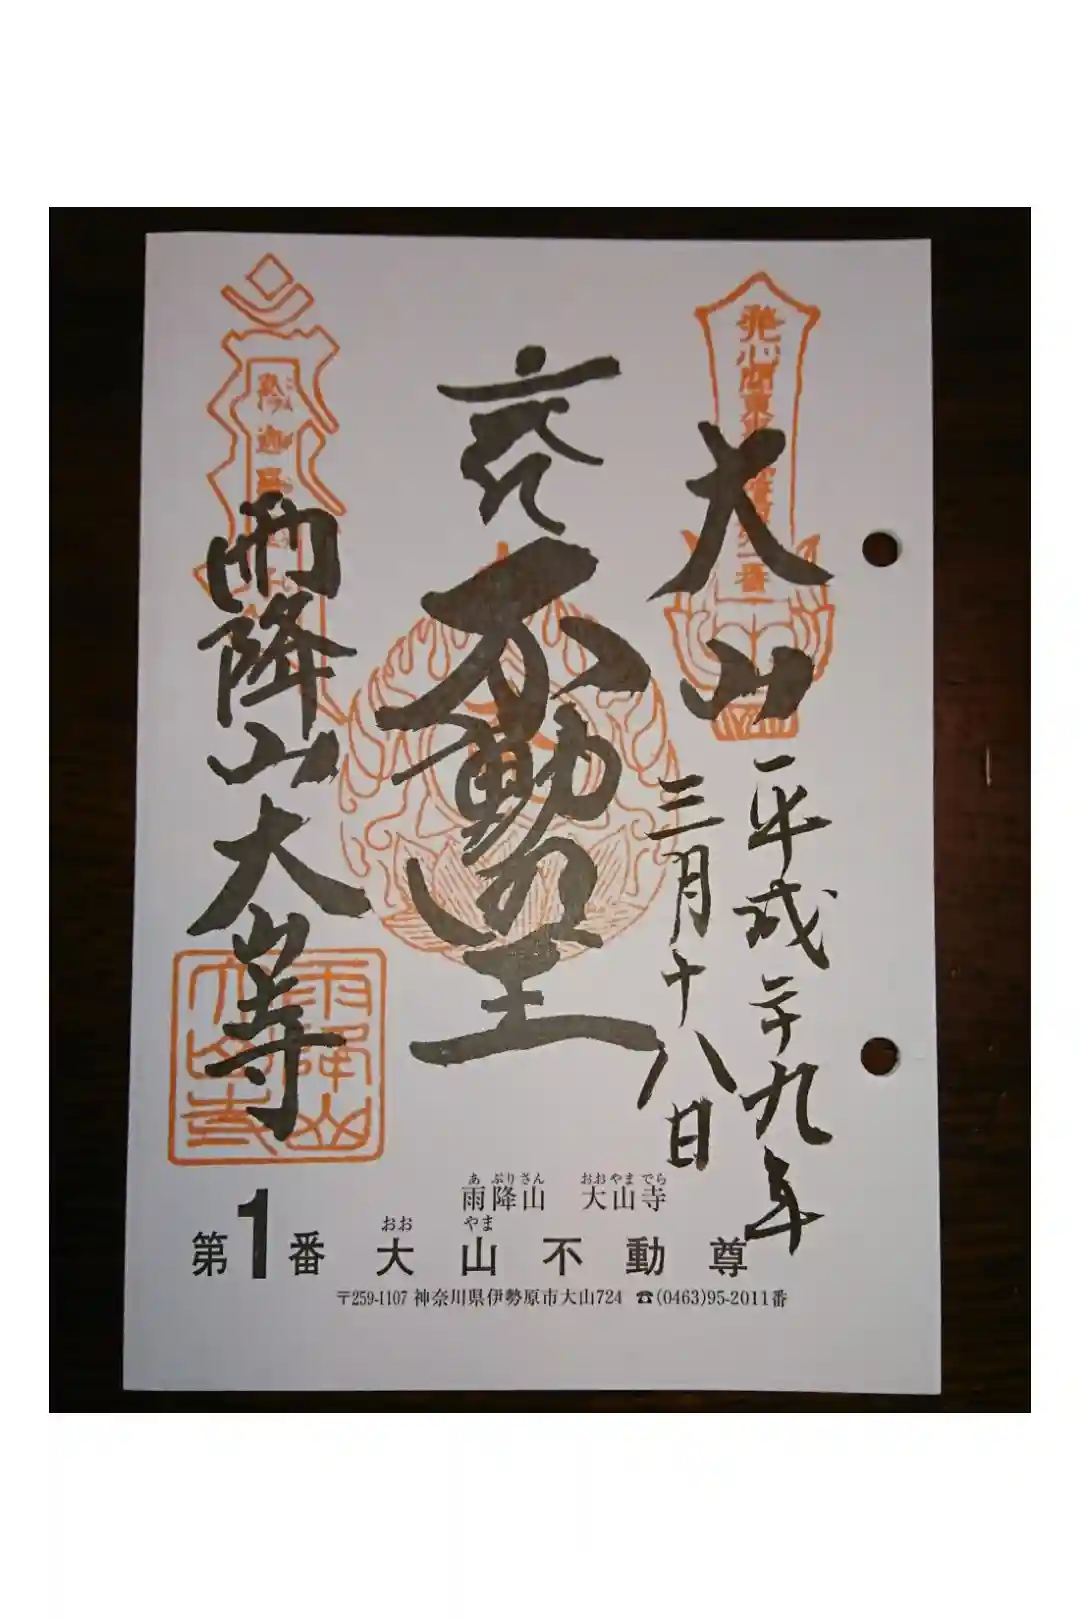 大山
平成二十九年
三月十八日
不動明王
雨降山大山寺
雨降山
大山寺
あ ぶりさん おおやまでら
雨降山 大山寺
おお やま
第1番 大山不動尊
〒259-1107 神奈川県伊勢原市大山724 ☎(0463)95-2011番